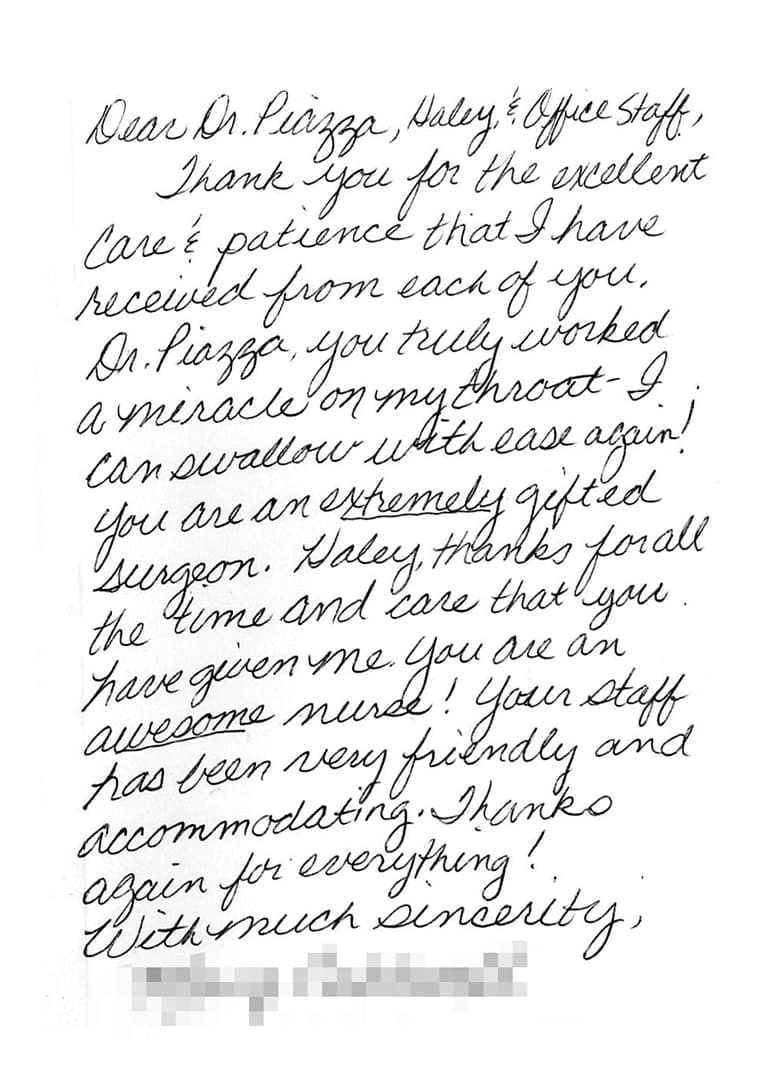 Dear Dr. Piazza, Haley, & Office Staff,
Thank you for the excellent
Care & patience that I have
received from each of you.
Dr. Piazza, you truly worked
a miracle on my throat - I
can swallow with ease again!
You are an extremely gifted
surgeon. Haley, thanks for all
the time and care that you
have given me. You are an
awesome nurse! Your staff
has been very friendly and
accommodating. Thanks
again for everything!
With much sincerity,